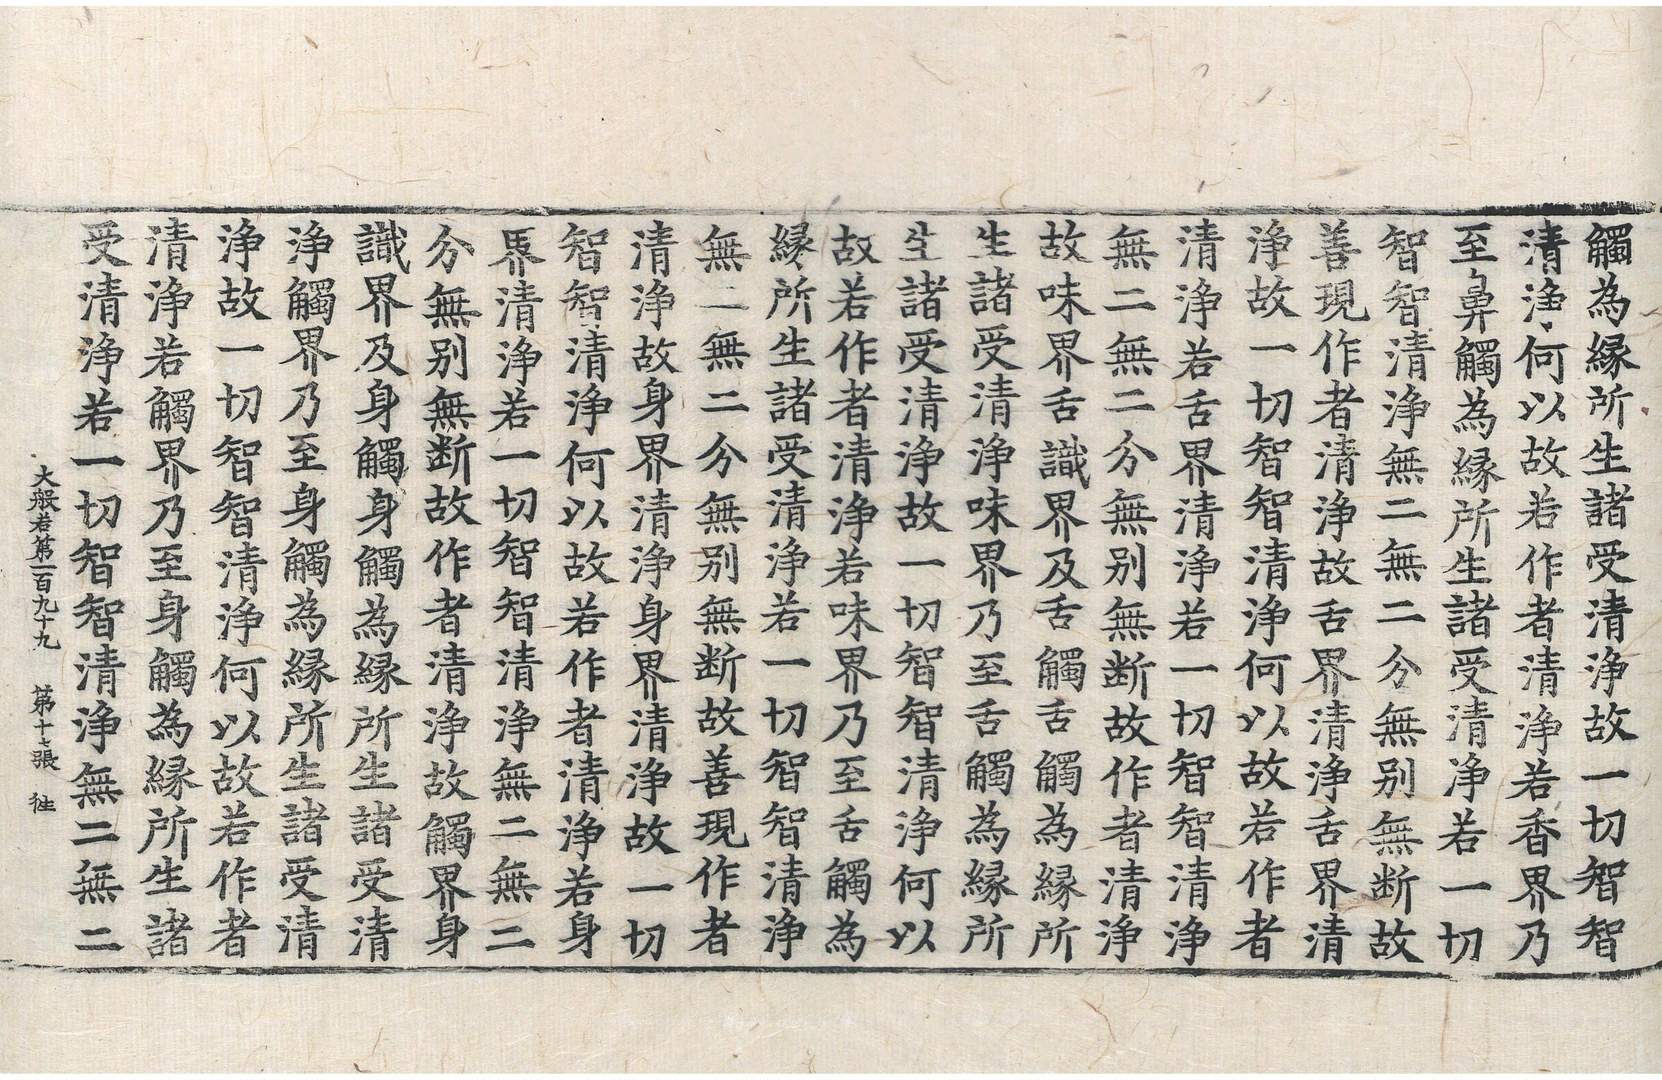 觸為縁所生諸受清浄故一切智智
清浄何以故若作者清浄若香界乃
至鼻觸為縁所生諸受清浄若一切
智智清浄無二無二分無别無断故
善現作者清浄故舌界清浄舌界清
浄故一切智智清浄何以故若作者
清浄若舌界清浄若一切智智清浄
無二無二分無别無断故作者清浄
故味界舌識界及舌觸舌觸為縁所
生諸受清浄味界乃至舌觸為縁所
生諸受清浄故一切智智清浄何以
故若作者清浄若味界乃至舌觸為
縁所生諸受清浄若一切智智清浄
無二無二分無别無断故善現作者
清浄故身界清浄身界清浄故一切
智智清浄何以故若作者清浄若身
界清浄若一切智智清浄無二無二
分無别無断故作者清浄故觸界身
識界及身觸身觸為縁所生諸受清
浄觸界乃至身觸為縁所生諸受清
浄故一切智智清浄何以故若作者
清浄若觸界乃至身觸為縁所生諸
受清浄若一切智智清浄無二無二
大般若第一百九十九 第十七張 徃